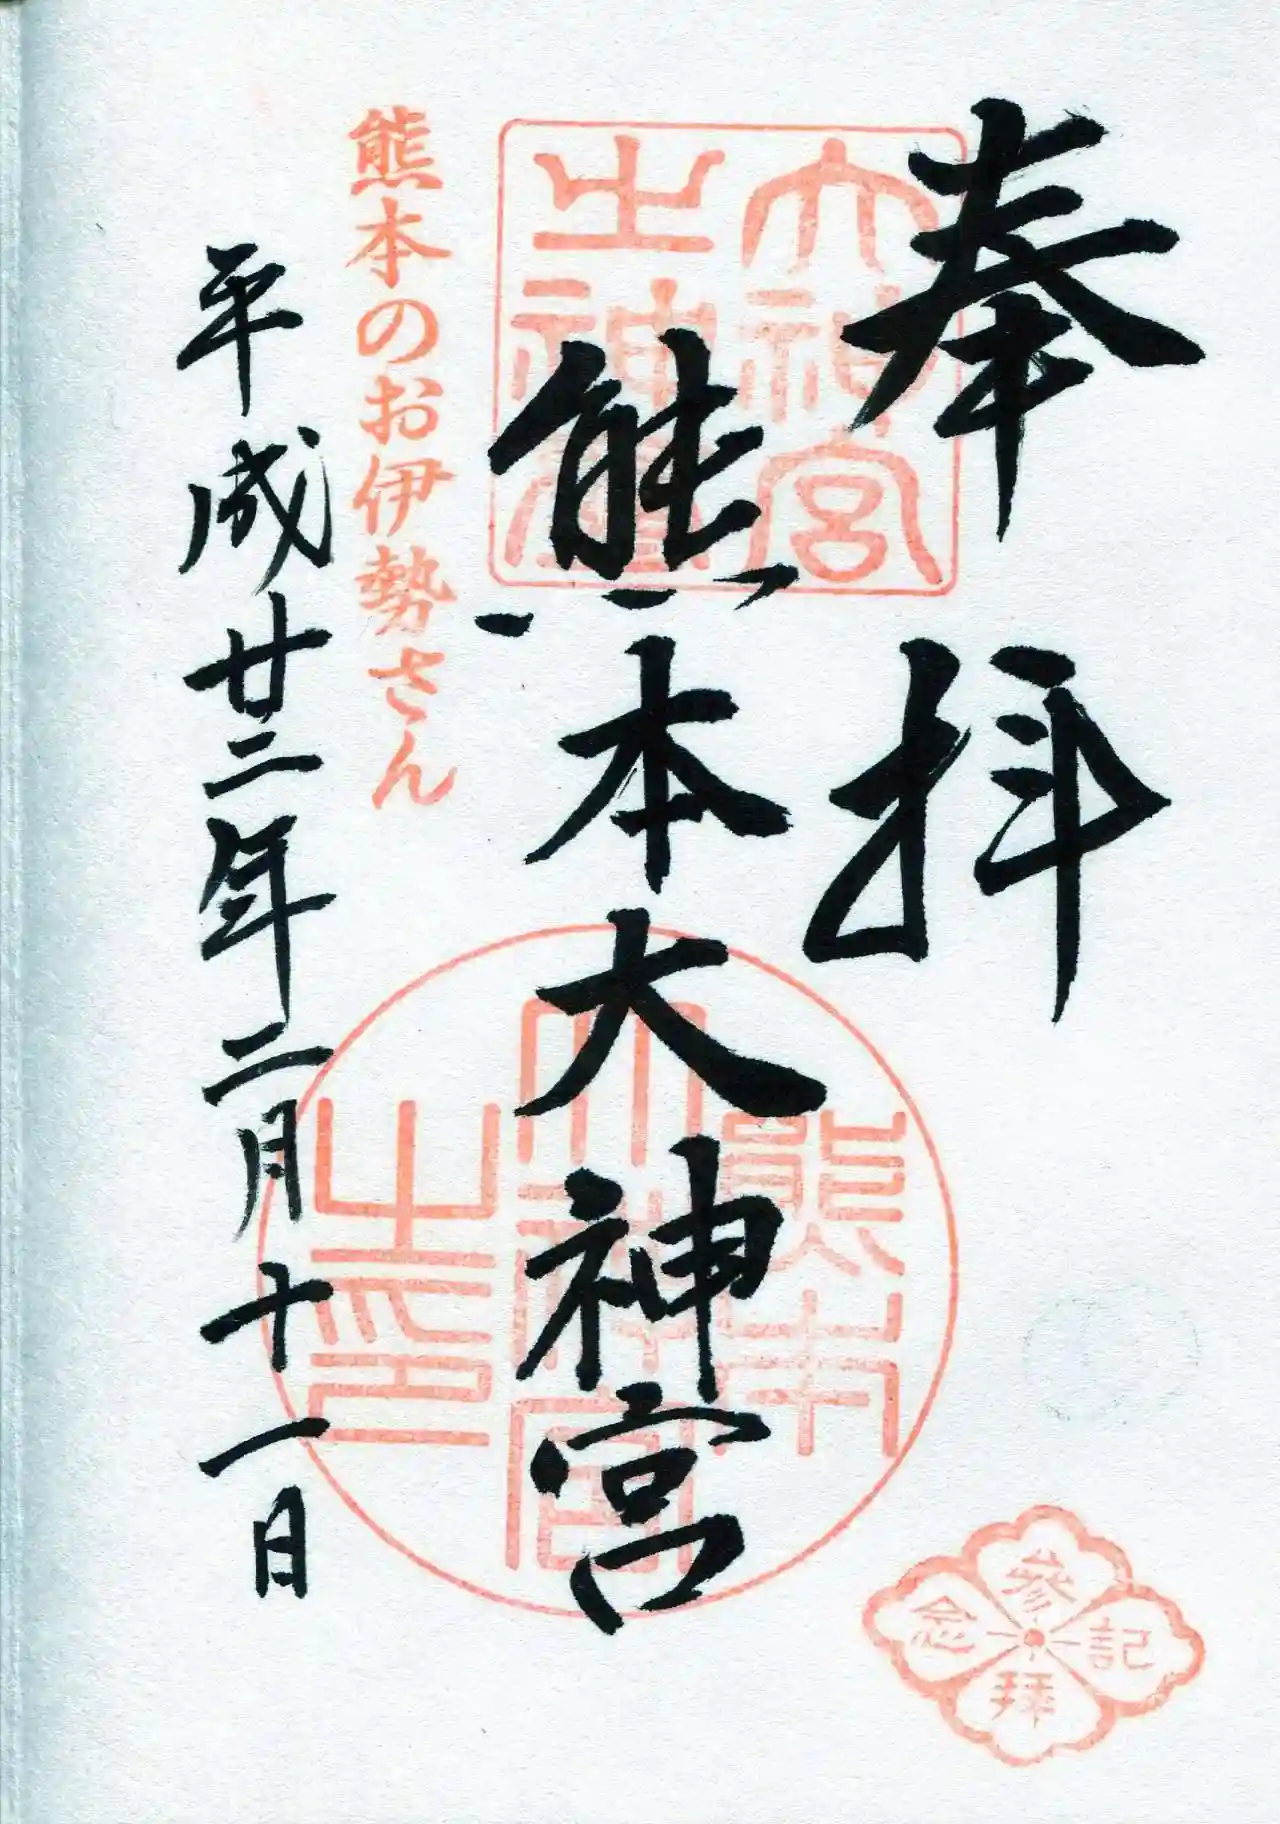 奉拝
大神宮
之神璽
熊本大神宮
熊本のお伊勢さん
平成廿二年二月十一日
熊本
大神宮
之印
参拝
記念